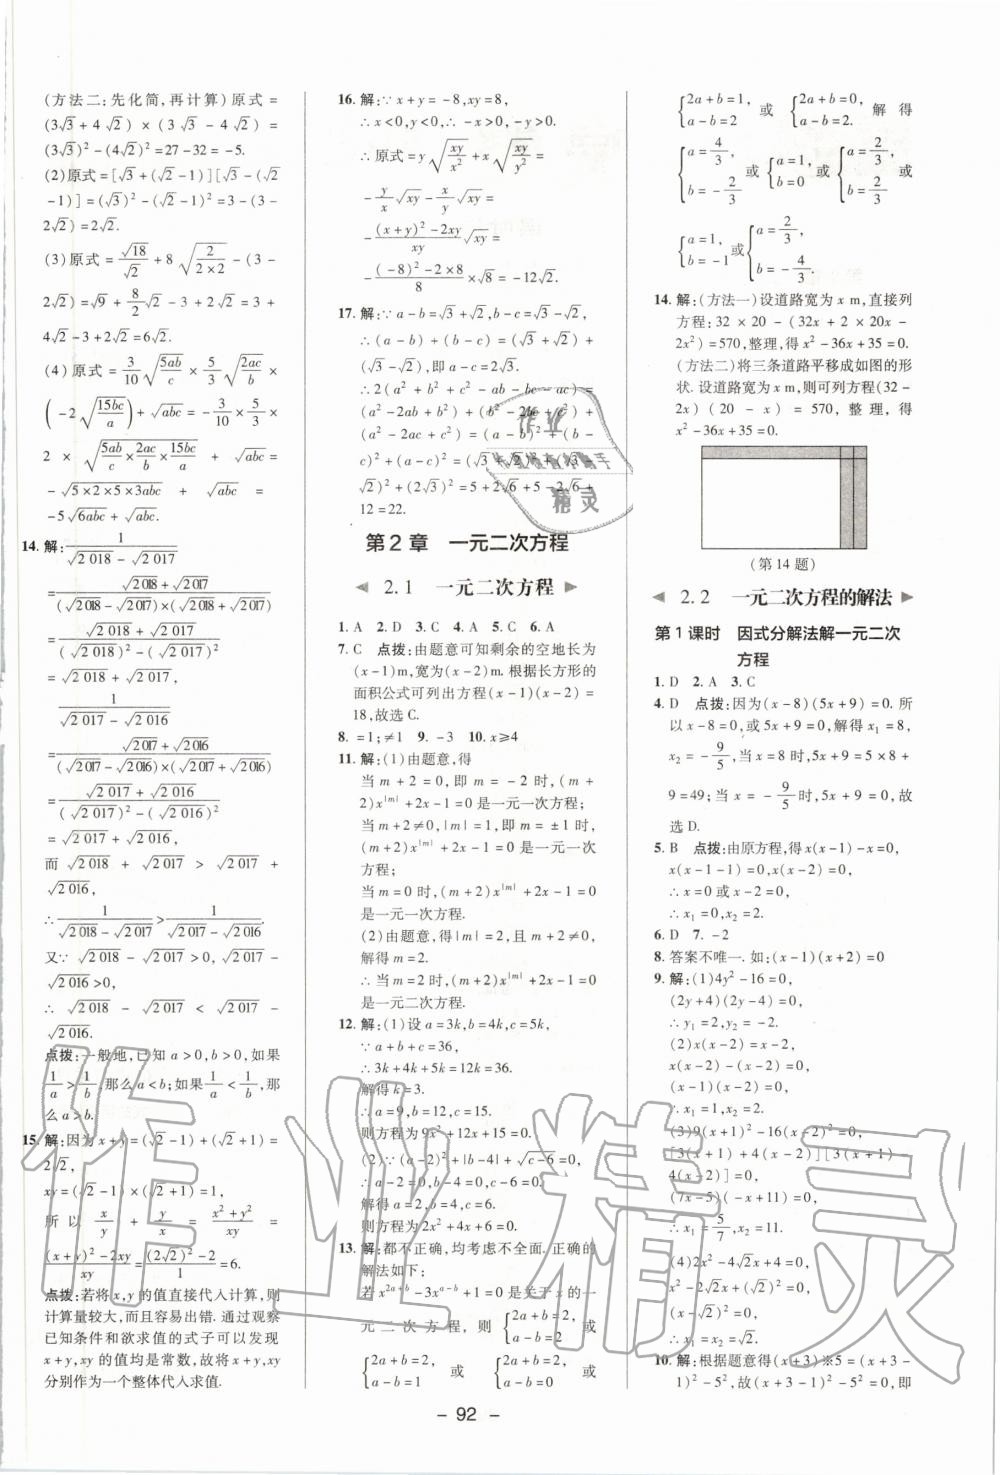 (方法二:先化简,再计算)原式=
(3√3+4√2)×(3√3-4√2)=
(3√3)²-(4√2)²=27-32=-5.
(2)原式=[√3+(√2-1)][√3-(√2
-1)]=(√3)²-(√2-1)²=3-(3-
2√2)=2√2.
(3)原式=√18/√2+8√(2/(2×2))-(3-
2√2)=√9+8/2√2-3+2√2=3+
4√2-3+2√2=6√2.
(4)原式=3/10√(5ab/c)×5/3√(2ac/b)×
(-2√(15bc/a))+√abc=-3/10×5/3×
2×√(5ab/c×2ac/b×15bc/a)+√abc=
-√(5×2×5×3abc)+√abc=
-5√6abc+√abc.
14.解:1/(√2 018-√2 017)
=(√2 018+√2 017)/((√2 018-√2 017)×(√2 018+√2 017))
=(√2 018+√2 017)/((√2 018)²-(√2 017)²)
=√2 018+√2 017,
1/(√2 017-√2 016)
=(√2 017+√2 016)/((√2 017-√2 016)×(√2 017+√2 016))
=(√2 017+√2 016)/((√2 017)²-(√2 016)²)
=√2 017+√2 016,
而√2 018+√2 017>√2 017+
√2 016,
∴1/(√2 018-√2 017)>1/(√2 017-√2 016).
又∵√2 018-√2 017>0,√2 017-
√2 016>0,
∴√2 018-√2 017<√2 017-
√2 016.
点拨:一般地,已知a>0,b>0,如果
1/a>1/b,那么a<b;如果1/a<1/b,那
么a>b.
15.解:因为x+y=(√2-1)+(√2+1)=
2√2,
xy=(√2-1)×(√2+1)=1,
所以x/y+y/x=(x²+y²)/xy=
((x+y)²-2xy)/xy=((2√2)²-2)/1=6.
点拨:若将x,y的值直接代入计算,则
计算量较大,而且容易出错.通过观察
已知条件和欲求值的式子可以发现
x+y,xy的值均是常数,故将x+y,xy
分别作为一个整体代入求值.
16.解:∵x+y=-8,xy=8,
∴x<0,y<0,∴-x>0,-y>0.
∴原式=y√(xy/x²)+x√(xy/y²)=
-y/x√xy-x/y√xy=
-((x+y)²-2xy)/xy√xy=
-((-8)²-2×8)/8×√8=-12√2.
17.解:∵a-b=√3+√2,b-c=√3-√2,
∴(a-b)+(b-c)=(√3+√2)+
(√3-√2),即a-c=2√3.
∴2(a²+b²+c²-ab-bc-ac)=
(a²-2ab+b²)+(b²-2bc+c²)+
(a²-2ac+c²)=(a-b)²+(b-
c)²+(a-c)²=(√3+√2)²+(√3-
√2)²+(2√3)²=5+2√6+5-2√6+
12=22.
第2章 一元二次方程
2.1 一元二次方程
1.A 2.D 3.C 4.A 5.C 6.A
7.C 点拨:由题意可知剩余的空地长为
(x-1)m,宽为(x-2)m.根据长方形的
面积公式可列出方程(x-1)(x-2)=
18,故选C.
8.=1;≠1 9.-3 10.x≥4
11.解:(1)由题意,得
当m+2=0,即m=-2时,(m+
2)x^|m|+2x-1=0是一元一次方程;
当m+2≠0,|m|=1,即m=±1时,
(m+2)x^|m|+2x-1=0是一元一次
方程;
当m=0时,(m+2)x^|m|+2x-1=0
是一元一次方程.
(2)由题意,得|m|=2,且m+2≠0,
解得m=2.
∴当m=2时,(m+2)x^|m|+2x-1=0
是一元二次方程.
12.解:(1)设a=3k,b=4k,c=5k,
∵a+b+c=36,
∴3k+4k+5k=12k=36.
解得k=3.
∴a=9,b=12,c=15.
则方程为9x²+12x+15=0.
(2)∵(a-2)²+|b-4|+√(c-6)=0,
∴a-2=0,b-4=0,c-6=0.
解得a=2,b=4,c=6.
则方程为2x²+4x+6=0.
13.解:都不正确,均考虑不全面.正确的
解法如下:
若x^(2a+b)-3x^(a-b)+1=0是关于x的一
元二次方程,则{2a+b=2,a-b=2或
{2a+b=2,a-b=1或{2a+b=2,a-b=0或
{2a+b=1,a-b=2或{2a+b=0,a-b=2.解得
{a=4/3,b=-2/3或{a=1,b=0或{a=2/3,b=2/3或
{a=1,b=-1或{a=2/3,b=-4/3.
14.解:(方法一)设道路宽为x m,直接列
方程:32×20-(32x+2×20x-
2x²)=570,整理,得x²-36x+35=0.
(方法二)将三条道路平移成如图的形
状.设道路宽为x m,则可列方程(32-
2x)(20-x)=570,整理,得
x²-36x+35=0.
(第14题)
2.2 一元二次方程的解法
第1课时 因式分解法解一元二次
方程
1.D 2.A 3.C
4.D 点拨:因为(x-8)(5x+9)=0.所
以x-8=0,或5x+9=0,解得x₁=8,
x₂=-9/5,当x=8时,5x+9=5×8+
9=49;当x=-9/5时,5x+9=0,故
选D.
5.B 点拨:由原方程,得x(x-1)-x=0,
x(x-1-1)=0,x(x-2)=0,
∴x=0或x-2=0,
∴x₁=0,x₂=2.
6.D 7.-2
8.答案不唯一.如:(x-1)(x+2)=0
9.解:(1)4y²-16=0,
(2y+4)(2y-4)=0,
∴y₁=2,y₂=-2.
(2)x(x-2)=x-2,
x(x-2)-(x-2)=0,
(x-2)(x-1)=0,
∴x₁=2,x₂=1.
(3)9(x+1)²-16(x-2)²=0,
[3(x+1)+4(x-2)][3(x+1)-
4(x-2)]=0,
(7x-5)(-x+11)=0,
∴x₁=5/7,x₂=11.
(4)2x²-4√2x+4=0,
x²-2√2x+(√2)²=0,
(x-√2)²=0,
∴x₁=x₂=√2.
10.解:根据题意得(x+3)※5=(x+3-
1)²-5²,故(x+3-1)²-5²=0,即
- 92 -
作业精灵
作业
精灵